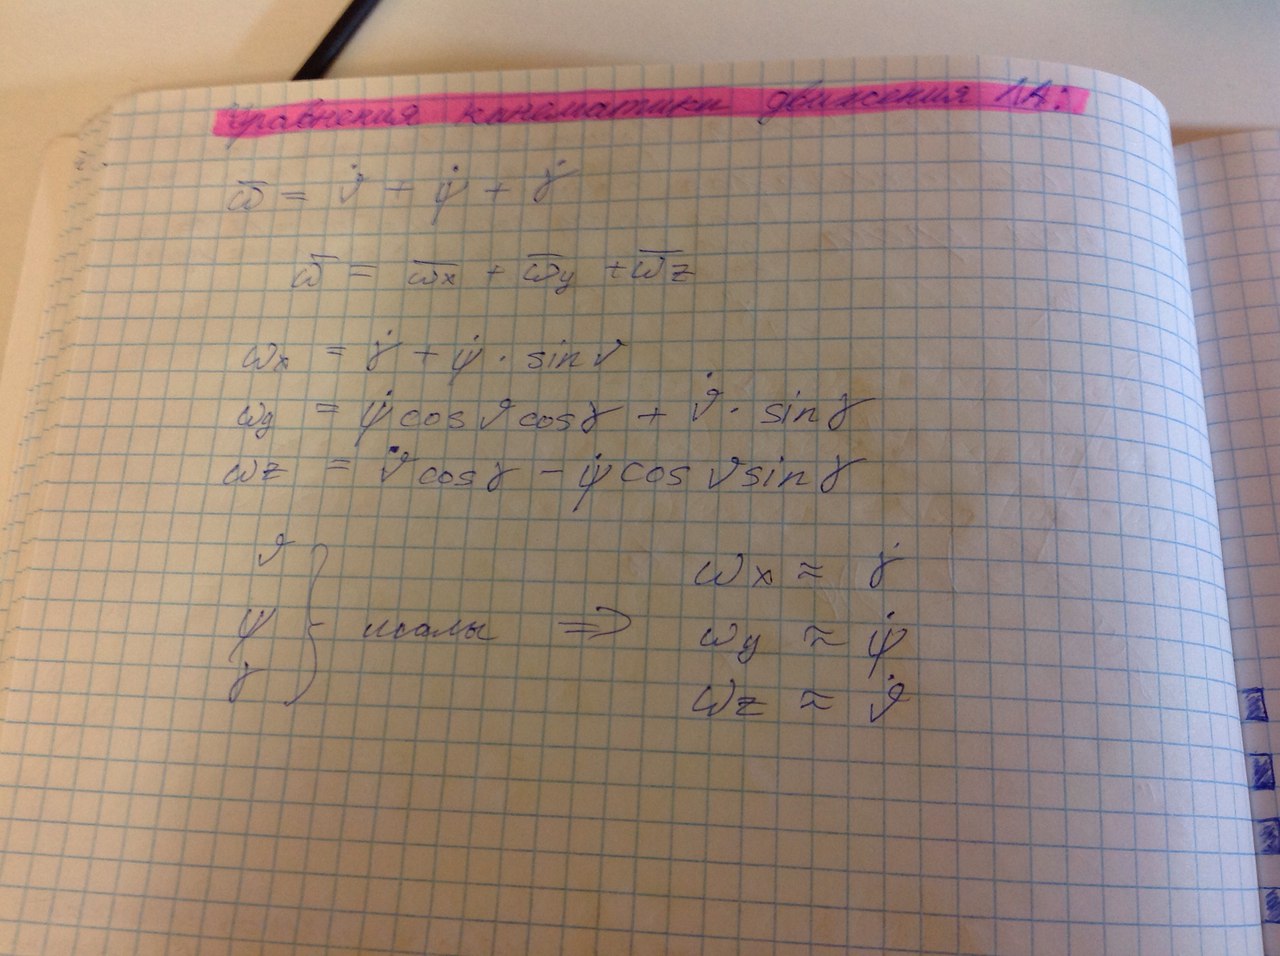 Уравнения кинематики движения ЛА:
ω̅ = ϑ̇ + ψ̇ + γ̇
ω̅ = ω̅x + ω̅y + ω̅z
ωx = γ̇ + ψ̇ · sin ϑ
ωy = ψ̇ cos ϑ cos γ + ϑ̇ · sin γ
ωz = ϑ̇ cos γ − ψ̇ cos ϑ sin γ
ϑ
ψ } малы ⇒
γ
ωx ≈ γ̇
ωy ≈ ψ̇
ωz ≈ ϑ̇